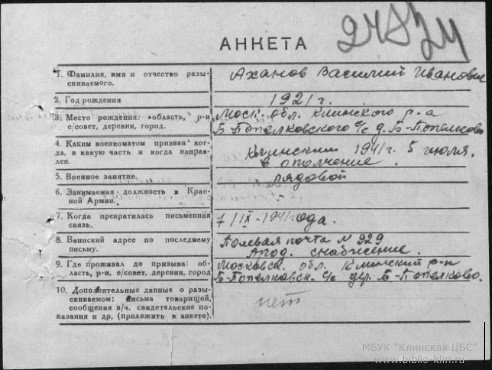 24834
АНКЕТА
1. Фамилия, имя и отчество разы-
скиваемого.
Аханов Василий Иванович
2. Год рождения
1921 г.
3. Место рождения: область, р-н
с/совет, деревни, город.
Моск. обл. Клинского р-а
Б-Попелковского с/с д. Б-Попелково
4. Каким военкоматом призван ког-
да, в какую часть и когда направ-
лен.
Клинским 1941 г. 5 июля.
в ополчение.
5. Военное занятие.
рядовой
6. Занимаемая должность в Крас-
ной Армии.
7. Когда прекратилась письменная
связь.
7/IX-1941 года.
8. Воинский адрес по последнему
письму.
Полевая почта № 929
снабжение
9. Где проживал до призыва: об-
ласть, р-н, с/совет, деревни, город
Московск. обл. Клинский р-н
Б-Попелковск. с/с дер. Б-Попелково.
10. Дополнительные данные о разы-
скиваемом: письма товарищей,
сообщения в/ч. свидетельские по-
казания и др. (приложить к анкете).
нет
МБУК "Клинская ЦБС"